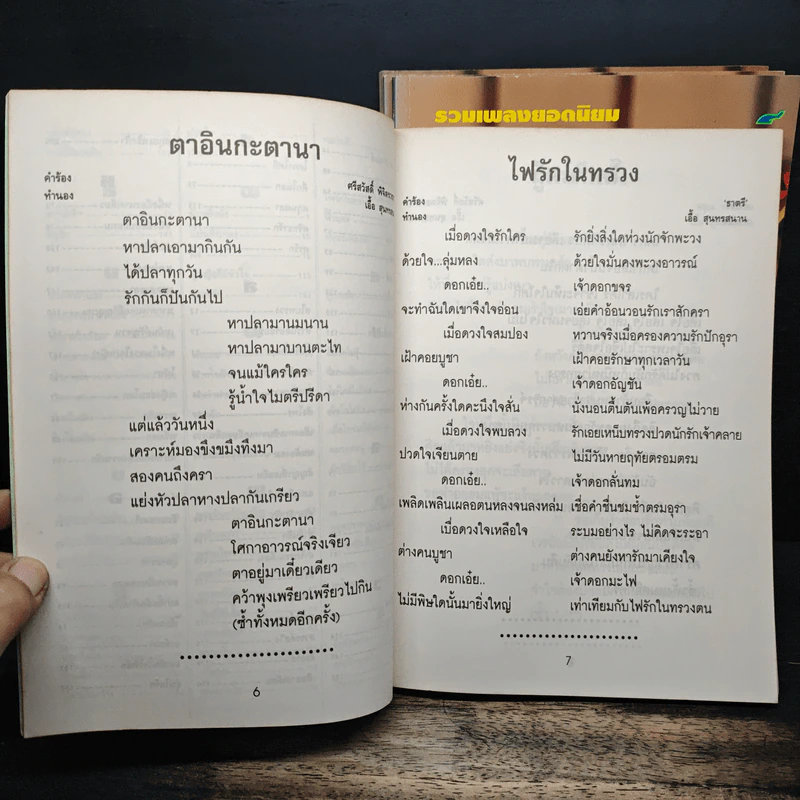 รวมเพลงยอดนิยม
๔
ตาอินกะตานา
คำร้อง ศรีสวัสดิ์
ทำนอง เอื้อ
ตาอินกะตานา
หาปลาเอามากินกัน
ได้ปลาทุกวัน
รักกันก็ปันกันไป
หาปลามานมนาน
หาปลามาบานตะไท
จนแม้ใครใคร
รู้น้ำใจไมตรีปรีดา
แต่แล้ววันหนึ่ง
เคราะห์มองขึงขมึงทึงมา
สองคนถึงครา
แย่งหัวปลาหางปลากันเกรียว
ตาอินกะตานา
โศกาอาวรณ์จริงเจียว
ตาอยู่มาเดี๋ยวเดียว
คว้าพุงเพรียวเพรียวไปกิน
(ซ้ำทั้งหมดอีกครั้ง)
6
ไฟรักในทรวง
คำร้อง 'ธาตรี'
ทำนอง เอื้อ สุนทรสนาน
เมื่อดวงใจรักใคร รักยิ่งสิ่งใดห่วงนักจักพะวง
ด้วยใจ...ลุ่มหลง ด้วยใจมั่นคงพะวงอาวรณ์
ดอกเอ๋ย.. เจ้าดอกขจร
จะทำฉันใดเขาจึงใจอ่อน เอ่ยคำอ้อนวอนรักเราสักครา
เมื่อดวงใจสมปอง หวานจริงเมื่อครองความรักปักอุรา
เฝ้าคอยบูชา เฝ้าคอยรักษาทุกเวลาวัน
ดอกเอ๋ย.. เจ้าดอกอัญชัน
ห่างกันครั้งใดคะนึงใจสั่น นั่งนอนตื้นตันเพ้อครวญไม่วาย
เมื่อดวงใจพบลวง รักเอยเหน็บทรวงปวดนักรักเจ้าคลาย
ปวดใจเจียนตาย ไม่มีวันหายฤทัยตรอมตรม
ดอกเอ๋ย.. เจ้าดอกลั่นทม
เพลิดเพลินเผลอตนหลงจนลงหล่ม เชื่อคำชื่นชมช้ำตรมอุรา
เบื่อดวงใจเหลือใจ ระบมอย่างไร ไม่คิดจะระอา
ต่างคนบูชา ต่างคนยังหารักมาเคียงใจ
ดอกเอ๋ย.. เจ้าดอกมะไฟ
ไม่มีพิษใดนั้นมายิ่งใหญ่ เท่าเทียมกับไฟรักในทรวงตน
7